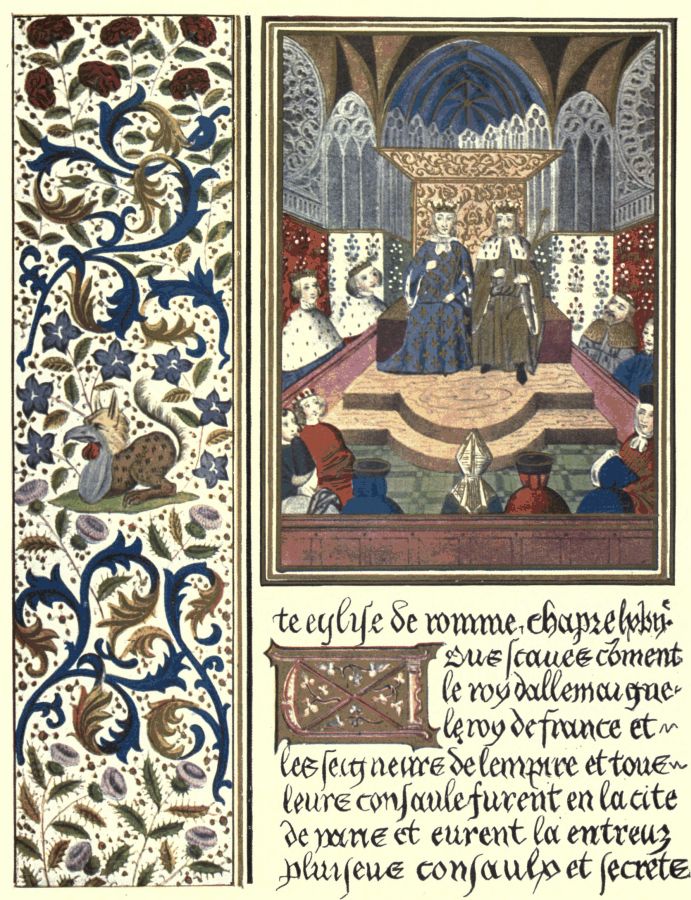 te eglise de romme. chapre
ous scaues cōment
le roy dallemaigne
le roy de france et
les seigneurs de lempire et tous
leurs consauls furent en la cite
de et eurent la entreuz
pluiseurs consaulx et secrets